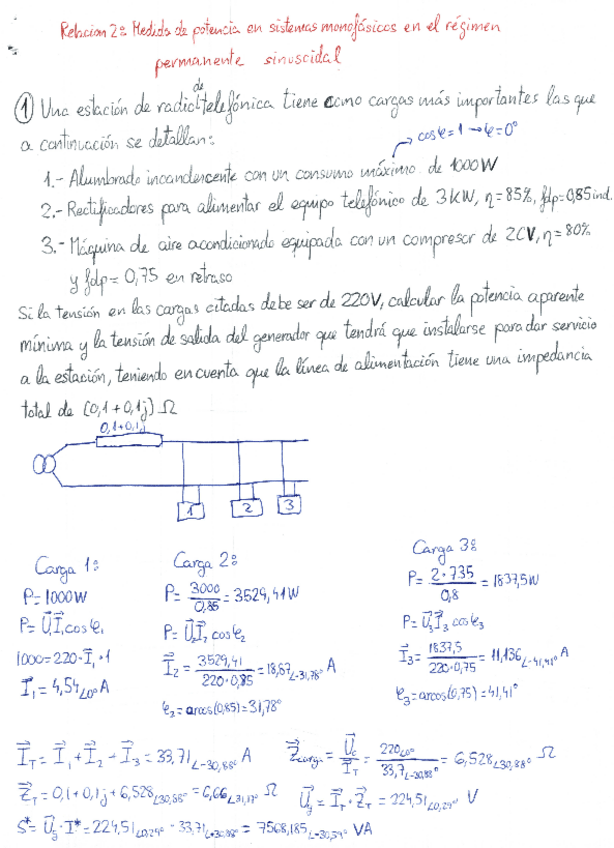 Relacion 2: Medida de potencia en sistemas monofásicos en el régimen
permanente sinusoidal
de
① Una estación de radiotelefónica tiene como cargas más importantes las que
a continuación se detallan:
cosφ=1 → φ=0°
1.- Alumbrado incandescente con un consumo máximo de 1000W
2.- Rectificadores para alimentar el equipo telefónico de 3KW, η=85%, fdp=0,85 ind.
3.- Máquina de aire acondicionado equipada con un compresor de 2CV, η=80%
y fdp=0,75 en retraso
Si la tensión en las cargas citadas debe ser de 220V, calcular la potencia aparente
mínima y la tensión de salida del generador que tendrá que instalarse para dar servicio
a la estación, teniendo en cuenta que la línea de alimentación tiene una impedancia
total de (0,1+0,1j) Ω
0,1+0,1j
1 2 3
Carga 1:
P=1000W
P=U⃗₁I⃗₁cosφ₁
1000=220·I⃗₁·1
I⃗₁=4,54∠0° A
Carga 2:
P=3000/0,85=3529,41W
P=U⃗₂I⃗₂cosφ₂
I⃗₂=3529,41/220·0,85=18,87∠-31,78° A
φ₂=arcos(0,85)=31,78°
Carga 3:
P=2·735/0,8=1837,5W
P=U⃗₃I⃗₃cosφ₃
I⃗₃=1837,5/220·0,75=11,136∠-41,41° A
φ₃=arcos(0,75)=41,41°
I⃗T=I⃗₁+I⃗₂+I⃗₃=33,71∠-30,88° A
Z⃗carga=U⃗c/I⃗T=220∠0°/33,7∠-30,88°=6,528∠30,88° Ω
Z⃗T=0,1+0,1j+6,528∠30,88°=6,66∠31,17° Ω
U⃗g=I⃗T·Z⃗T=224,51∠0,29° V
S*=U⃗g·I*=224,51∠0,29°·33,71∠+30,88°=7568,185∠-30,59° VA